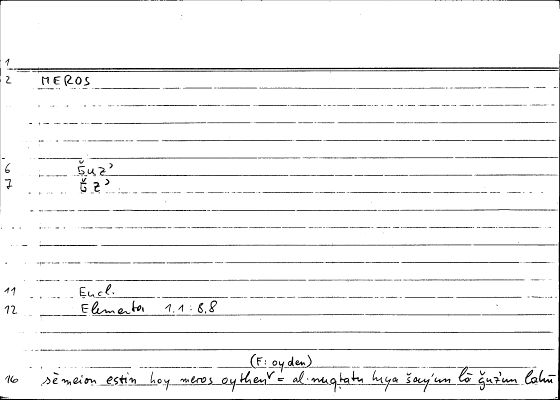 1
2 MEROS
6 ǧuz'
7 ǧz'
11 Eucl.
12 Elementa 1,1 : 8,8
(F: oyden)
16 sēmeion estin hoy meros oythen = al-nuqṭatu hiya šay'un lā ǧuz'un lahū